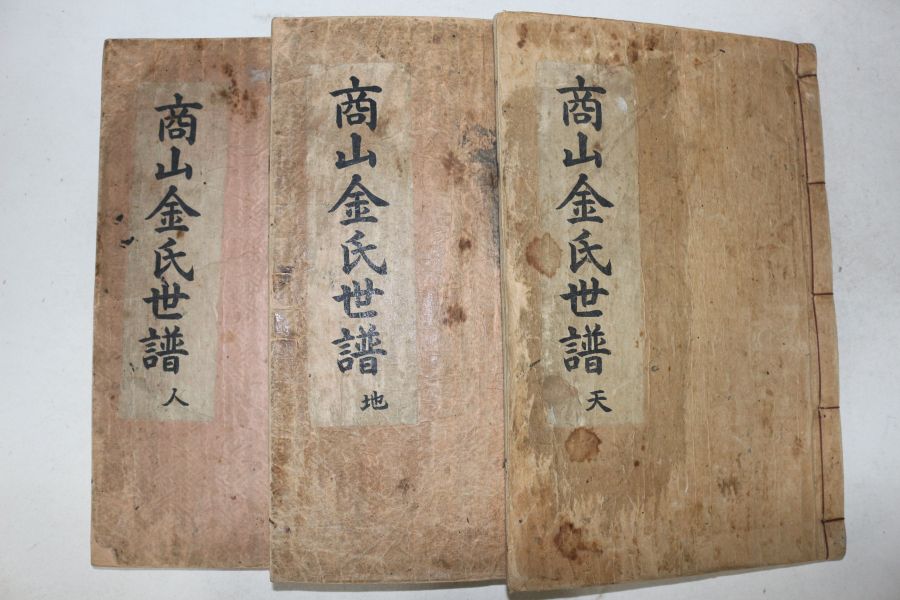 商山金氏世譜
天
商山金氏世譜
地
商山金氏世譜
人